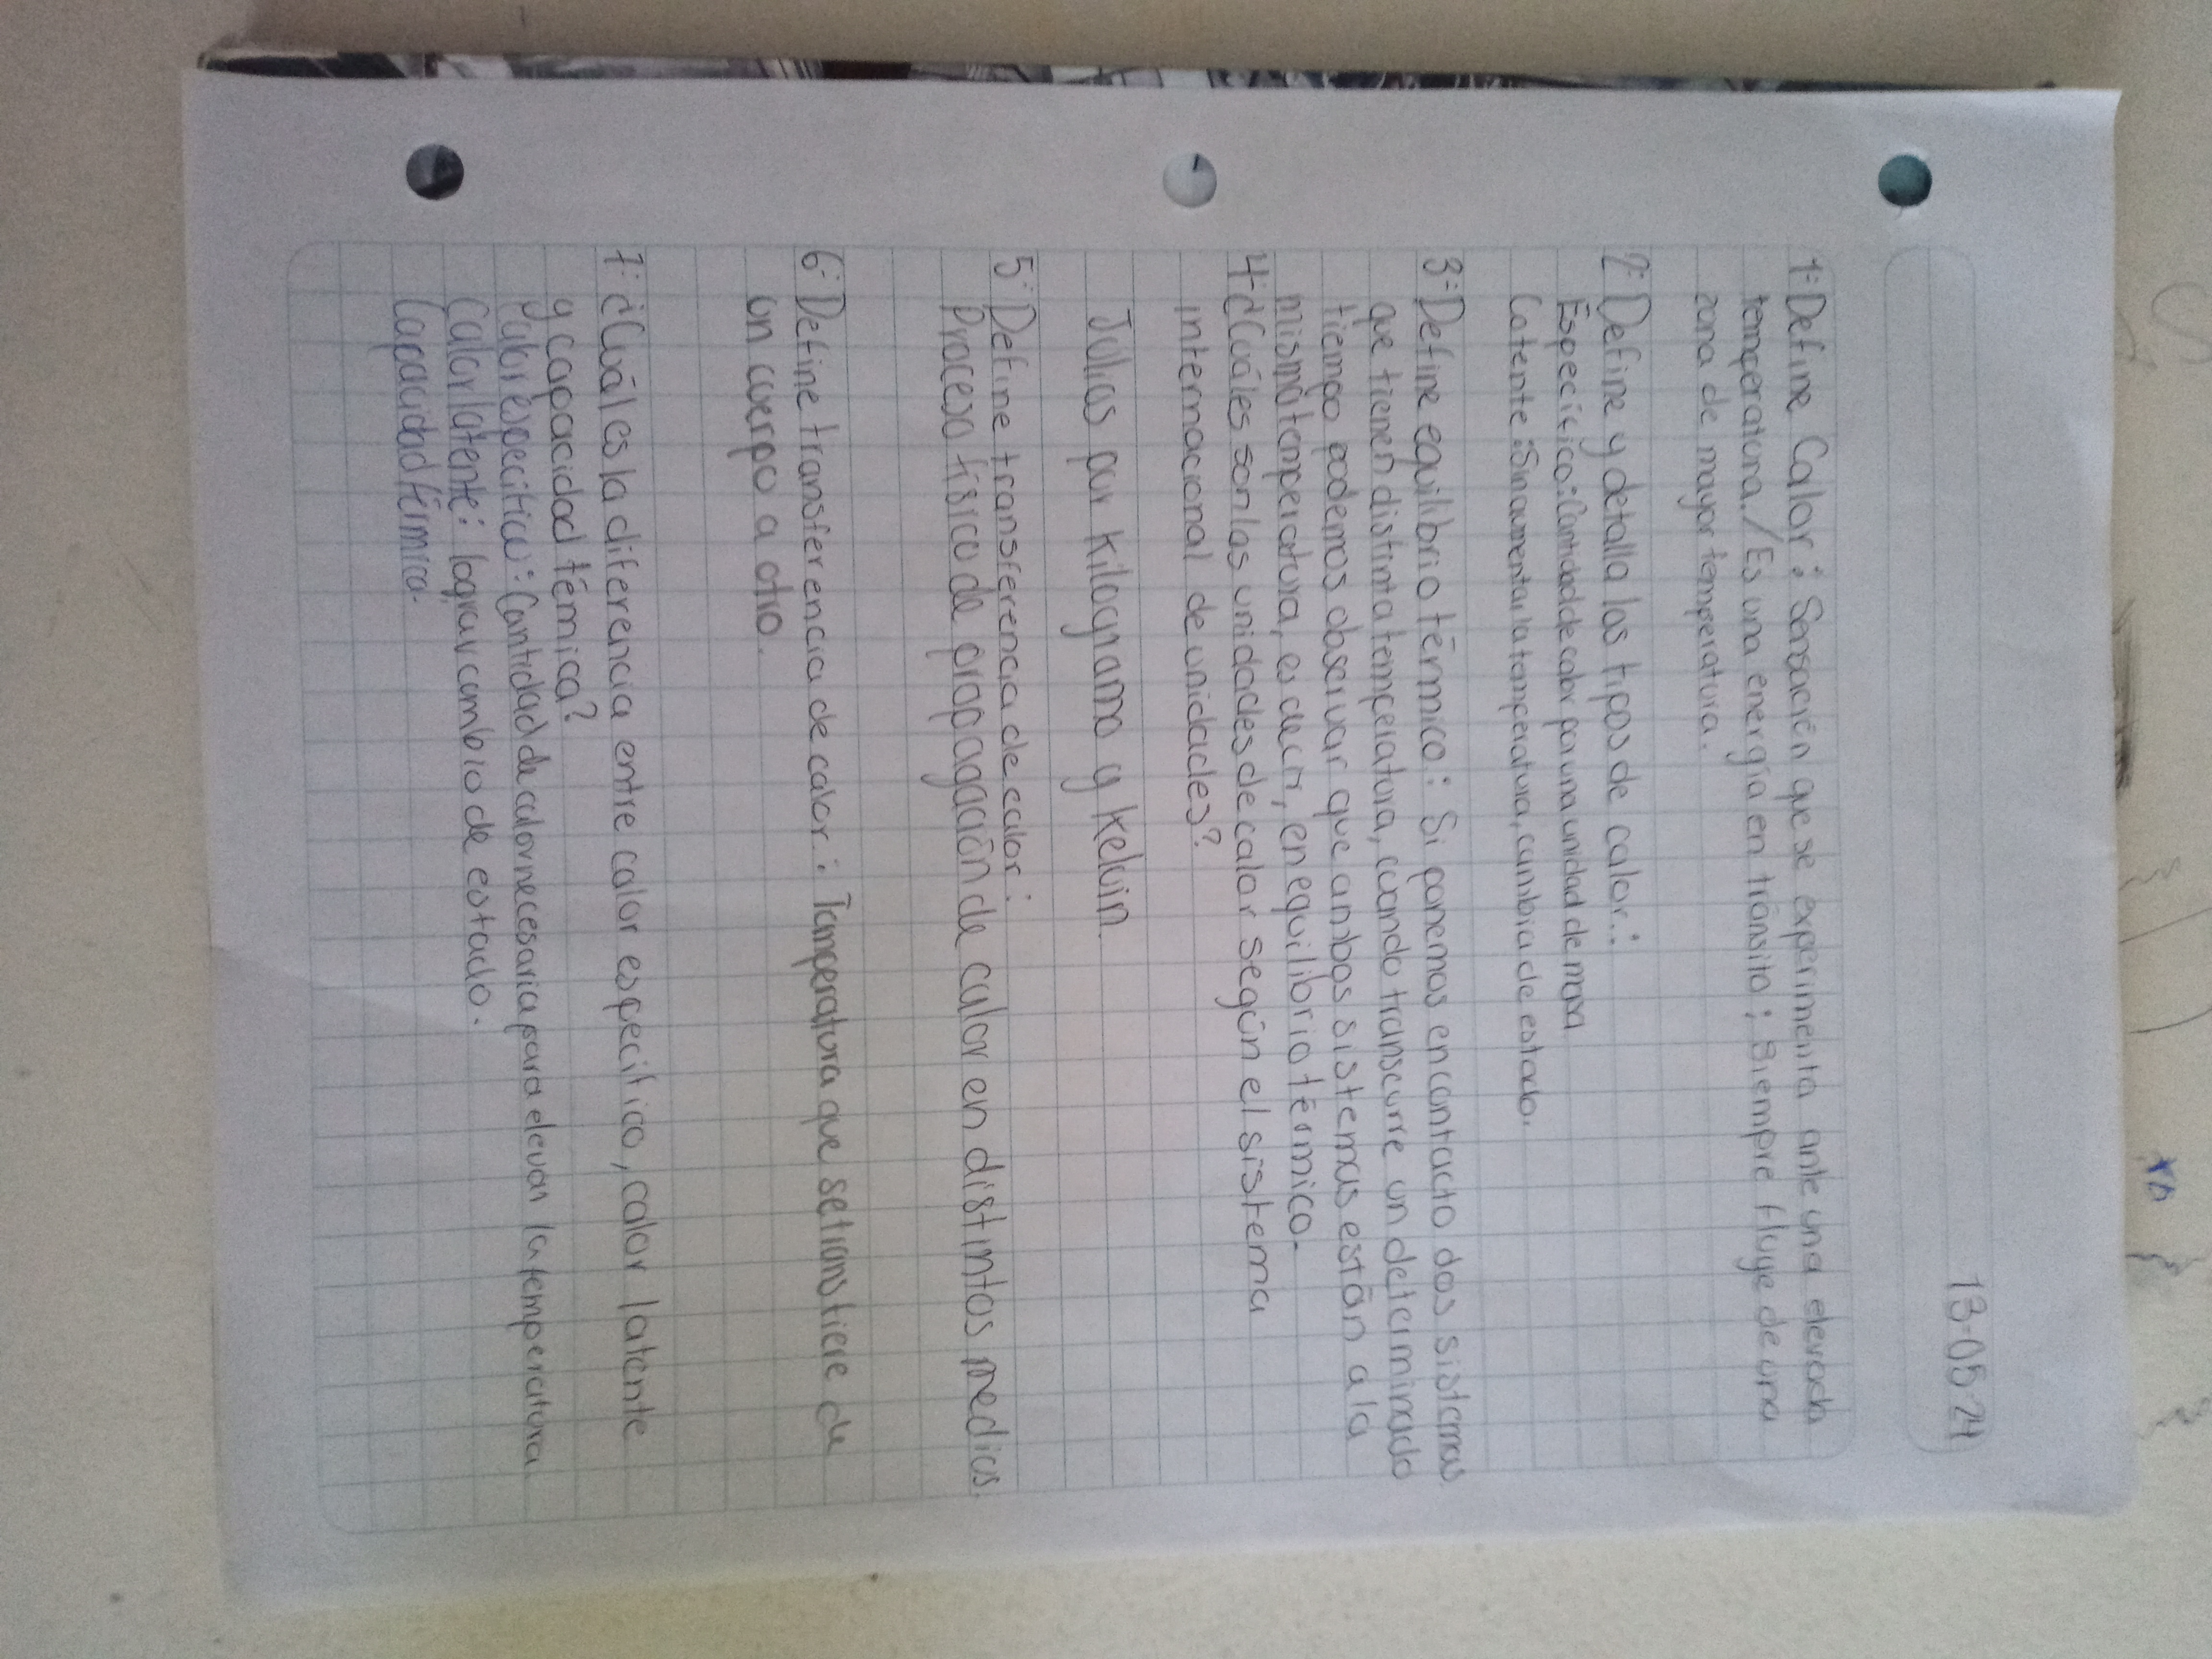 13-05-24
1- Define Calor: Sensación que se experimenta ante una elevada
temperatura. / Es una energía en tránsito; Siempre fluye de una
zona de mayor temperatura.
2- Define y detalla los tipos de calor:
Específico: Cantidad de calor por una unidad de masa
Latente: Sin aumentar la temperatura, cambia de estado.
3- Define equilibrio térmico: Si ponemos en contacto dos sistemas
que tienen distinta temperatura, cuando transcurre un determinado
tiempo podemos observar que ambos sistemas están a la
misma temperatura, es decir, en equilibrio térmico.
4- ¿Cuáles son las unidades de calor según el sistema
internacional de unidades?
Julios por kilogramo y kelvin.
5- Define transferencia de calor:
Proceso físico de propagación de calor en distintos medios.
6- Define transferencia de calor: Temperatura que se transfiere de
un cuerpo a otro.
7- ¿Cuál es la diferencia entre calor específico, calor latente
y capacidad témica?
Calor específico: Cantidad de calor necesaria para elevar la temperatura
Calor latente: lograr cambio de estado.
Capacidad térmica.